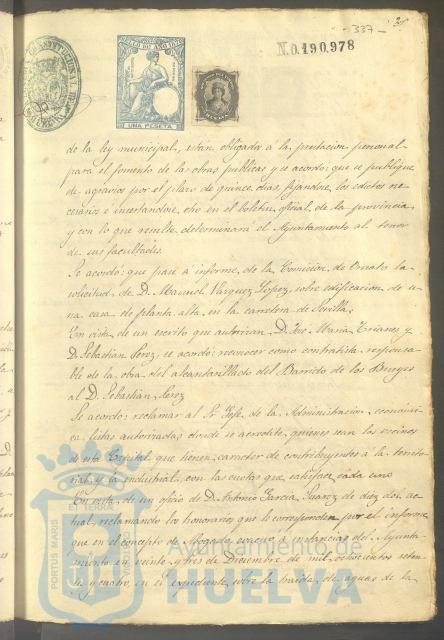 - 337 -
N.0.190.978
UNA PESETA
de la ley municipal, estan obligados á la prestacion personal
para el fomento de las obras publicas y se acordo: que se publique
de agravios por el plazo de quince dias, fijandose los edictos ne
cesarios é insertandose otro en el boletin oficial de la provincia
y con lo que resulte determinará el Ayuntamiento al tenor
de sus facultades.
Se acordó: que pase á informe de la Comision de Ornato la
solicitud de D. Manuel Vazquez Lopez, sobre edificacion de u-
na casa de planta alta en la carretera de Sevilla.
En vista de un escrito que autorizan D. José Maria Trianes y
D. Sebastian Perez, se acordo: reconocer como contratista responsa-
ble de la obra del alcantarillado del Barrido de los Burgos
al D. Sebastian Perez
Se acordo: reclamar al Sr. Jefe de la Administracion económi-
ca, listas autorizadas donde se acredite quienes sean los vecinos
de esta Capital que tienen caracter de contribuyentes á la territo-
rial y la industrial, con las cuotas que satisface cada uno
En vista de un oficio de D. Antonio Garcia Juarez de diez del ac-
tual, reclamando los honorarios que le corresponden por el informe
que en el concepto de Abogado evacuó á instancias del Ayunta-
miento en veinte y tres de Diciembre de mil ochocientos seten-
ta y cuatro en el expediente sobre la traida de aguas de la
PORTUS MARIS
ET TERRAE
Ayuntamiento de
HUELVA